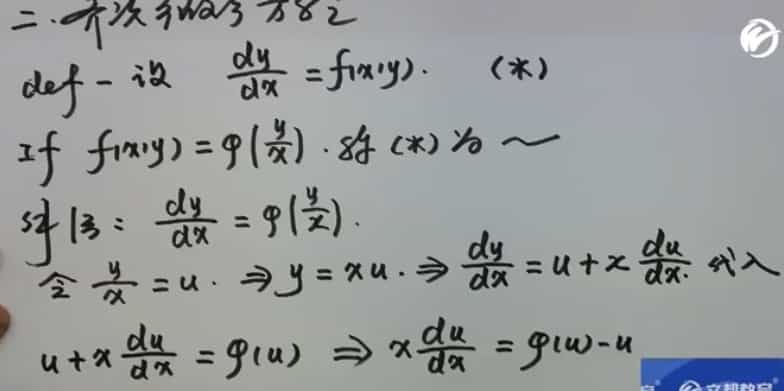 二. 齐次微分方程
def - 设 dy/dx = f(x,y). (*)
If f(x,y) = φ(y/x). 称 (*) 为 ～
解法: dy/dx = φ(y/x).
令 y/x = u. ⇒ y = xu. ⇒ dy/dx = u + x du/dx. 代入
u + x du/dx = φ(u) ⇒ x du/dx = φ(u) - u